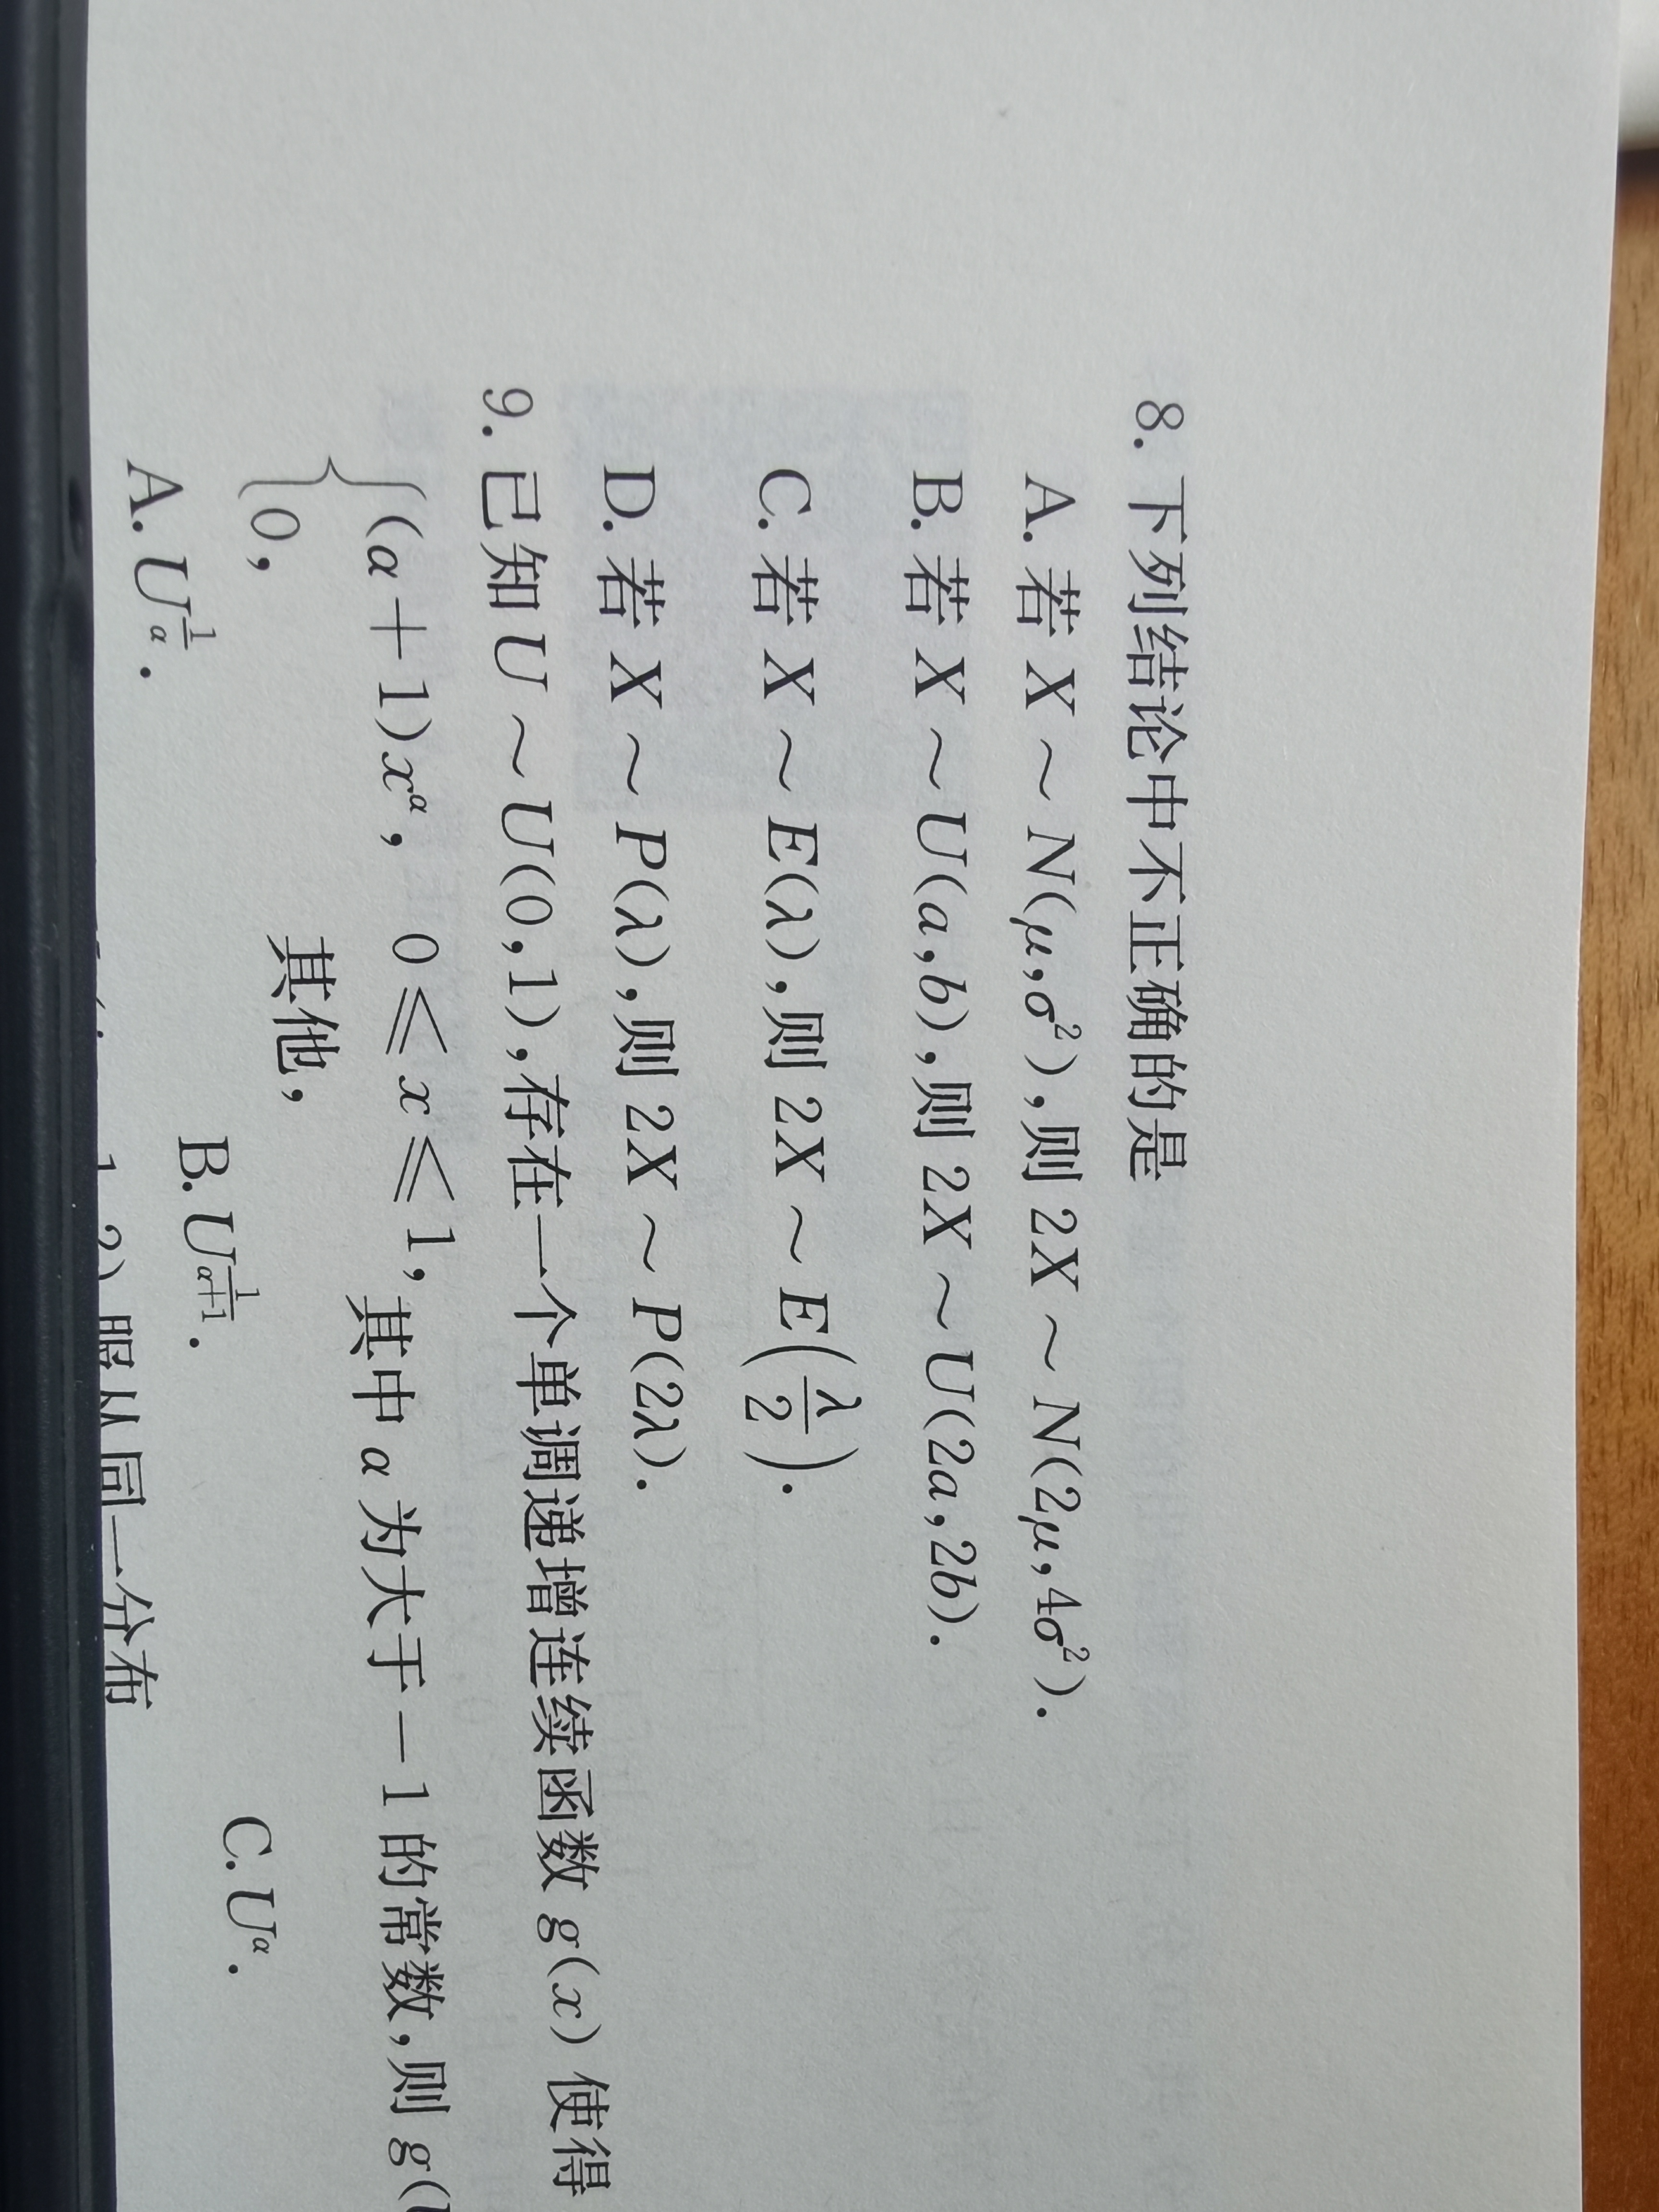 8. 下列结论中不正确的是
A. 若 X ~ N(μ,σ²),则 2X ~ N(2μ,4σ²).
B. 若 X ~ U(a,b),则 2X ~ U(2a,2b).
C. 若 X ~ E(λ),则 2X ~ E(λ/2).
D. 若 X ~ P(λ),则 2X ~ P(2λ).
9. 已知 U ~ U(0,1),存在一个单调递增连续函数 g(x) 使得
{(α+1)x^α, 0 ≤ x ≤ 1, 其中 α 为大于 −1 的常数,则 g(
0, 其他,
A. U^(1/α). B. U^(1/(α+1)). C. U^α.
服从同一分布